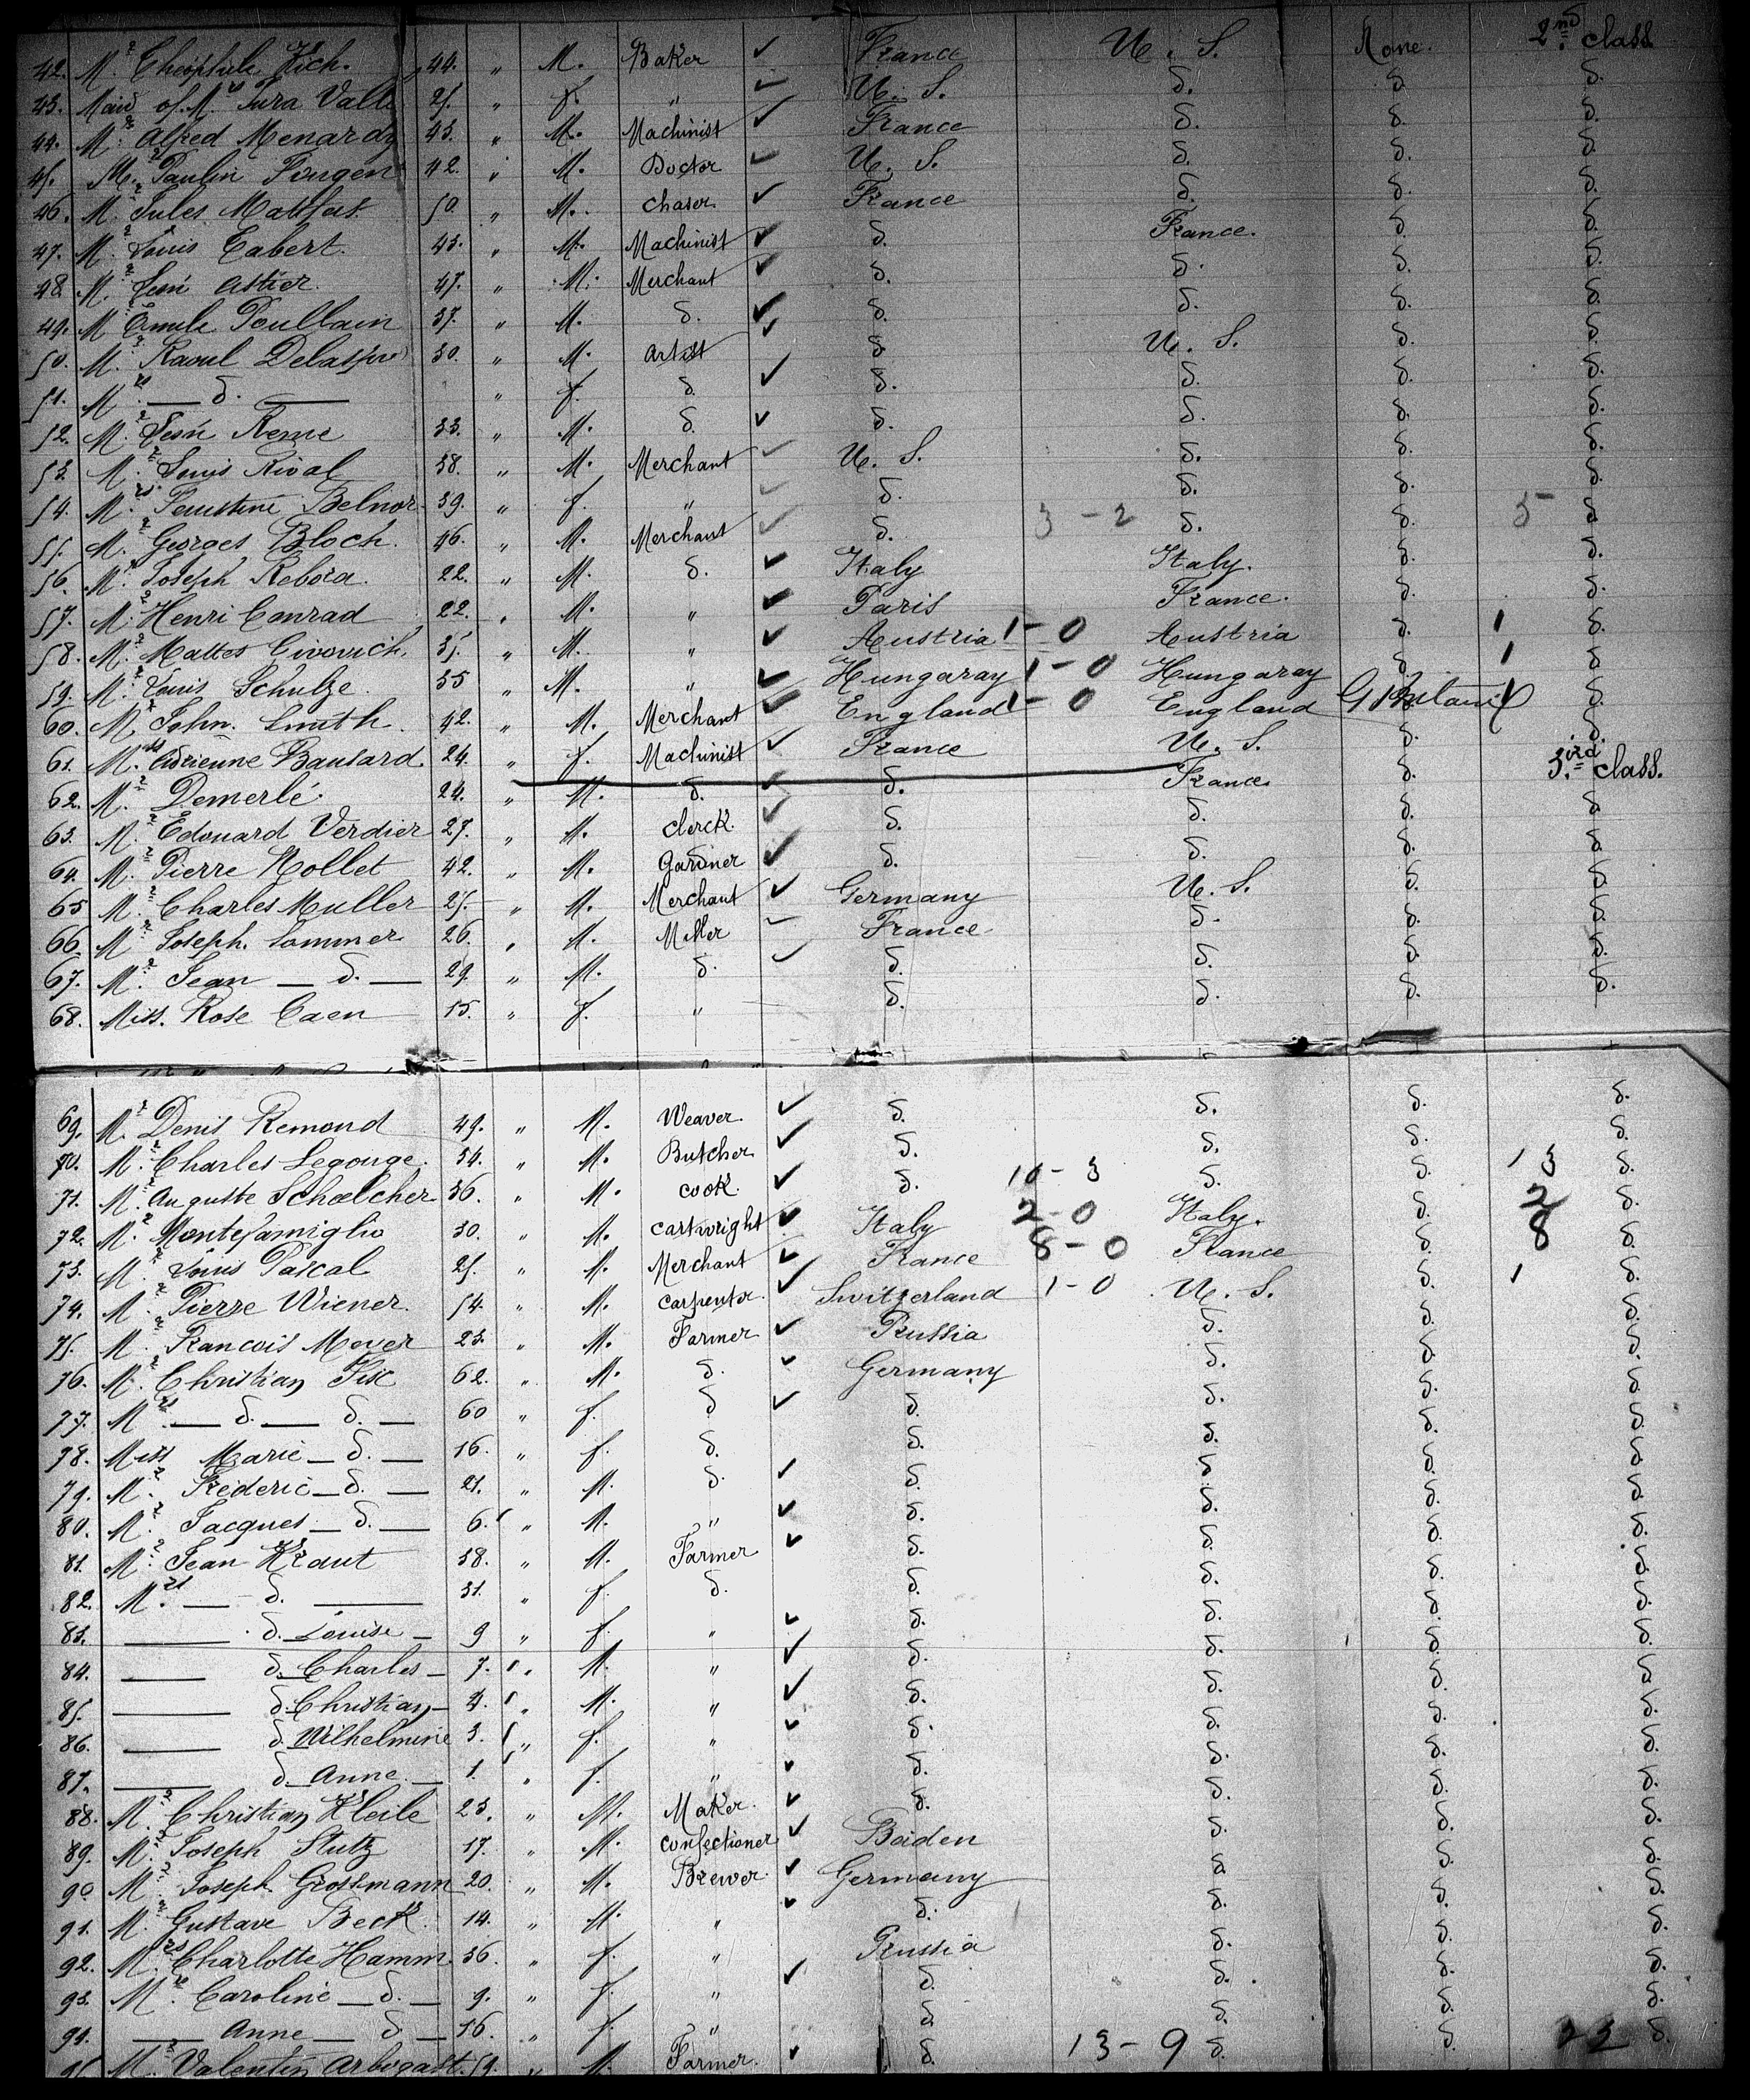 42. Mr. Theophile Fich. 44. " M. Baker ✓ France U. S. None. 2nd class
43. Maid of Mrs Jura Valle 25. " f. " ✓ U. S. d. d. d.
44. Mr. Alfred Menardy 43. " M. Machinist ✓ France d. d. d.
45. Mr. Paulin 42. " M. Doctor ✓ U. S. d. d. d.
46. Mr. Jules 50. " M. Chaser ✓ France d. d. d.
47. Mr. Louis Cabert. 43. " M. Machinist ✓ d. France. d. d.
48. Mr. Léon Astier. 47. " M. Merchant ✓ d. d. d. d.
49. Mr. Emile Poullain 37. " M. d. ✓ d. d. d. d.
50. Mr. Raoul 30. " M. Artist ✓ d. U. S. d. d.
51. Mrs. — d. — " f. d. ✓ d. d. d. d.
52. Mr. Léon Reme 33. " M. d. ✓ d. d. d. d.
53. Mr. Louis Rival 38. " M. Merchant ✓ U. S. d. d. d.
54. Mrs. Faustine Belnor 39. " f. " ✓ d. d. d. d.
55. Mr. Georges Bloch. 46. " M. Merchant ✓ d. 3 - 2 d. d. 5 d.
56. Mr. Joseph Rebora. 22. " M. d. ✓ Italy Italy. d. d.
57. Mr. Henri Conrad 22. " M. " ✓ Paris France. d. d.
58. Mr. Mattes Civovich. 35. " M. " ✓ Austria 1 - 0 Austria d. 1 d.
59. Mr. Louis Schulze. 35 " M. " ✓ Hungaray 1 - 0 Hungaray d. 1 d.
60. Mr. John. Smith. 42. " M. Merchant ✓ England 1 - 0 England d. G Britain 1 d.
61. Mrs. Adrienne Bansard. 24. " f. Machinist ✓ France U. S. d. d.
62. Mr. Demerlé. 24. " M. d. ✓ d. France. d. 3ird class.
63. Mr. Edouard Verdier 27. " M. Clerck. ✓ d. d. d. d.
64. Mr. Pierre Mollet 42. " M. Gardner ✓ d. d. d. d.
65 Mr. Charles Muller 25. " M. Merchant ✓ Germany U. S. d. d.
66. Mr. Joseph. Sommer 26. " M. Miller ✓ France. d. d. d.
67. Mr. Jean — d. — 29. " M. d. ✓ d. d. d. d.
68. Miss. Rose Caen 15. " f. " d. d. d. d.
69. Mr. Denis Remond 49. " M. Weaver. ✓ d. d. d. d.
70. Mr. Charles Legouge. 34. " M. Butcher ✓ d. d. d. d.
71. Mr. Auguste Schœlcher 36. " M. Cook. ✓ d. 10 - 3 d. d. 13 d.
72. Mr. Montefamiglio 30. " M. Cartwright ✓ Italy 2 - 0 Italy. d. 2 d.
73. Mr. Louis Pascal 25. " M. Merchant ✓ France 8 - 0 France d. 8 d.
74. Mr. Pierre Wiener. 54. " M. Carpenter. ✓ Switzerland 1 - 0 U. S. d. 1 d.
75. Mr. Francois Meyer 23. " M. Farmer ✓ Prussia d. d. d.
76. Mr. Christian Fisc 62. " M. d. ✓ Germany d. d. d.
77. Mrs. — d. — d. — 60 " f. d ✓ d. d. d. d.
78. Miss Marie — d. — 16. " f. d. d. d. d. d.
79. Mr. Frederic — d. — 21. " M. d. ✓ d. d. d. d.
80. Mr. Jacques — d. — 6. " M. " ✓ d. d. d. d.
81. Mr. Jean Kraut 38. " M. Farmer ✓ d. d. d. d.
82. Mrs. — d. — 31. " f. d. d. d. d. d.
83. — d. Louise — 9 " f. " ✓ d. d. d. d.
84. — d. Charles — 7. " M. " ✓ d. d. d. d.
85. — d. Christian — 4. " M. " ✓ d. d. d. d.
86. — d. Wilhelmine 3. " f. " ✓ d. d. d. d.
87. — d. Anne. — 1. " f. " ✓ d. d. d. d.
88. Mr. Christian Kleile 23. " M. Maker. ✓ d. d. d. d.
89. Mr. Joseph Stutz 17. " M. Confectioner ✓ Baden d. d. d.
90 Mr. Joseph Grossmann 20. " M. Brewer. ✓ Germany d. d. d.
91. Mr. Gustave Beck. 14. " M. " ✓ d. d. d. d.
92. Mrs. Charlotte Hamm. 36. " f. " Prussia d. d. d.
93. Mr. Caroline — d. — 9. " f. " ✓ d. d. d. d.
94. — Anne — d — 16. " f. " d. d. d. d.
95. Mr. Valentin Arbogast. 59. " M. Farmer. ✓ d. 13 - 9 d. d. 22 d.